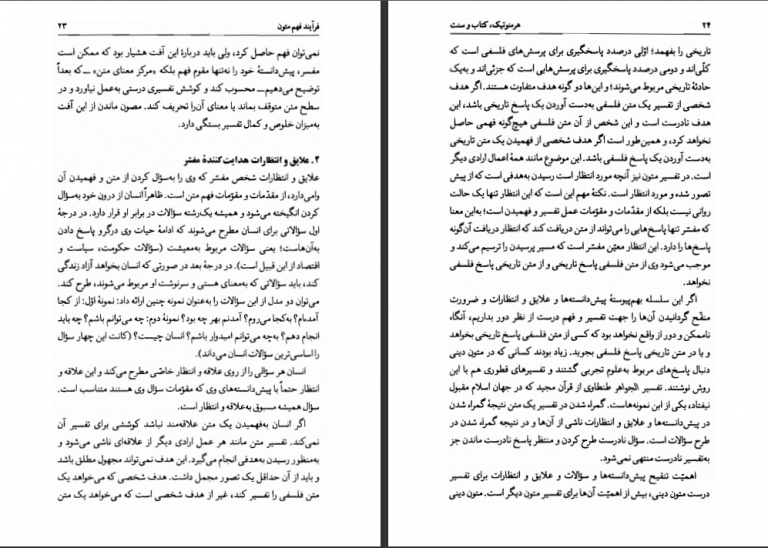 فرآیند فهم متون ۲۳
نمی‌توان فهم حاصل کرد، ولی باید دربارهٔ این آفت هشیار بود که ممکن است
مفسر، پیش‌دانستهٔ خود را نه‌تنها مقوم فهم بلکه «مرکز معنای متن» ـــ که بعداً
توضیح می‌دهیم ـــ محسوب کند و کوشش تفسیری درستی به‌عمل نیاورد و در
سطح متن متوقف بماند یا معنای آن‌را تحریف کند. مصون ماندن از این آفت
به‌میزان خلوص و کمال تفسیر بستگی دارد.
۲. علایق و انتظارات هدایت‌کنندهٔ مفسّر
علایق و انتظارات شخص مفسّر که وی را به‌سؤال کردن از متن و فهمیدن آن
وامی‌دارد، از مقدّمات و مقوّمات فهم متن است. ظاهراً انسان از درون خود به‌سؤال
کردن انگیخته می‌شود و همیشه یک‌رشته سؤالات در برابر او قرار دارد. در درجهٔ
اول سؤالاتی برای انسان مطرح می‌شوند که ادامهٔ حیات وی درگرو پاسخ دادن
به‌آن‌هاست؛ یعنی سؤالات مربوط به‌معیشت (سؤالات حکومت، سیاست و
اقتصاد از این قبیل است). در درجهٔ بعد در صورتی که انسان بخواهد آزاد زندگی
کند، باید سؤالاتی که به‌معنای هستی و سرنوشت او مربوط می‌شوند، طرح کند.
می‌توان دو مدل از این سؤالات را به‌عنوان نمونه چنین ارائه داد: نمونهٔ اوّل: از کجا
آمده‌ام؟ به‌کجا می‌روم؟ آمدنم بهر چه بود؟ نمونهٔ دوم: چه می‌توانم باشم؟ چه باید
انجام دهم؟ به‌چه می‌توانم امیدوار باشم؟ انسان چیست؟ (کانت این چهار سؤال
را اساسی‌ترین سؤالات انسان می‌داند).
انسان هر سؤالی را از روی علاقه و انتظار خاصّی مطرح می‌کند و این علاقه و
انتظار حتماً با پیش‌دانسته‌های وی که مقوّمات سؤال وی هستند متناسب است.
سؤال همیشه مسبوق به‌علاقه و انتظار است.
اگر انسان به‌فهمیدن یک متن علاقه‌مند نباشد کوششی برای تفسیر آن
نمی‌کند. تفسیر متن مانند هر عمل ارادی دیگر از علاقه‌ای ناشی می‌شود و
به‌منظور رسیدن به‌هدفی انجام می‌گیرد. این هدف نمی‌تواند مجهول مطلق باشد
و باید از آن حداقل یک تصور مجمل داشت. هدف شخصی که می‌خواهد یک
متن فلسفی را تفسیر کند، غیر از هدف شخصی است که می‌خواهد یک متن
۲۴ هرمنوتیک، کتاب و سنت
تاریخی را بفهمد؛ اوّلی درصدد پاسخگیری برای پرسش‌های فلسفی است که
کلّی‌اند و دومی درصدد پاسخگیری برای پرسش‌هایی است که جزئی‌اند و به‌یک
حادثهٔ تاریخی مربوط می‌شوند؛ و این‌ها دو گونه هدف متفاوت هستند. اگر هدف
شخصی از تفسیر یک متن فلسفی به‌دست آوردن یک پاسخ تاریخی باشد، این
هدف نادرست است و این شخص از آن متن فلسفی هیچ‌گونه فهمی حاصل
نخواهد کرد، و همین‌طور است اگر هدف شخصی از فهمیدن یک متن تاریخی
به‌دست آوردن یک پاسخ فلسفی باشد. این موضوع مانند همهٔ اعمال ارادی دیگر
است. در تفسیر متون نیز آنچه مورد انتظار است رسیدن به‌هدفی است که از پیش
تصور شده و مورد انتظار است. نکتهٔ مهم این است که این انتظار تنها یک حالت
روانی نیست بلکه از مقدّمات و مقوّمات عمل تفسیر و فهمیدن است؛ به‌این معنا
که مفسّر تنها پاسخ‌هایی را می‌تواند از متن دریافت کند که انتظار دریافت آن‌گونه
پاسخ‌ها را دارد. این انتظار معیّن مفسّر است که مسیر پرسیدن را ترسیم می‌کند و
موجب می‌شود وی از متن فلسفی پاسخ تاریخی و از متن تاریخی پاسخ فلسفی
نخواهد.
اگر این سلسله بهم‌پیوستهٔ پیش‌دانسته‌ها و علایق و انتظارات و ضرورت
منقّح گردانیدن آن‌ها را جهت تفسیر و فهم درست از نظر دور بداریم، آنگاه
ناممکن و دور از واقع نخواهد بود که کسی از متن فلسفی پاسخ تاریخی بخواهد
و یا در متن تاریخی پاسخ فلسفی بجوید. زیاد بودند کسانی که در متون دینی
دنبال پاسخ‌های مربوط به‌علوم تجربی گشتند و تفسیرهای قطوری هم با این
روش نوشتند. تفسیر الجواهر طنطاوی از قرآن مجید که در جهان اسلام مقبول
نیفتاد، یکی از این نمونه‌هاست. گمراه شدن در تفسیر یک متن نتیجهٔ گمراه شدن
در پیش‌دانسته‌ها و علایق و انتظارات ناشی از آن‌ها و در نتیجه گمراه شدن در
طرح سؤالات است. سؤال نادرست طرح کردن و منتظر پاسخ نادرست ماندن جز
به‌تفسیر نادرست منتهی نمی‌شود.
اهمیّت تنقیح پیش‌دانسته‌ها و سؤالات و علایق و انتظارات برای تفسیر
درست متون دینی، بیش از اهمیّت آن‌ها برای تفسیر متون دیگر است. متون دینی